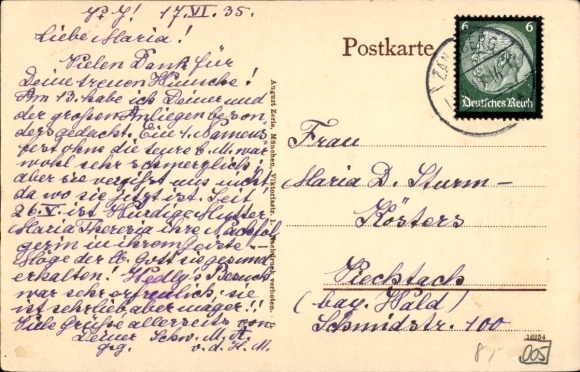 P. J! 17.VI.35.
Liebe Maria!
Vielen Dank für
Deine treuen Wünsche!
Am 13. habe ich Deiner und
der großen Anliegen beson-
ders gedacht. Eine 1. Namens-
fest ohne die teure E. M. war
wohl sehr schmerzlich;
aber sie vergißt uns nicht,
da wo sie jetzt ist. Seit
26.V. ist Würdige Mutter
Maria Theresia ihre Nachfol-
gerin in ihrem Geiste. –
Möge der lb. Gott sie gesund
erhalten! Hedly's Besuch
war sehr erfreulich; sie
ist sehr lieb, aber mager!!
Viele Grüße allerseits von
Deiner Schw. M. A.
v. d. H. M.
August Zerle, München, Viktoriastr.
Nachdruck verboten.
Postkarte
6 6
Deutsches Reich
Frau
Maria D. Sturm-
Kösters
Viechtach
(bay. Wald)
Schmidstr. 100
16254
8,
005